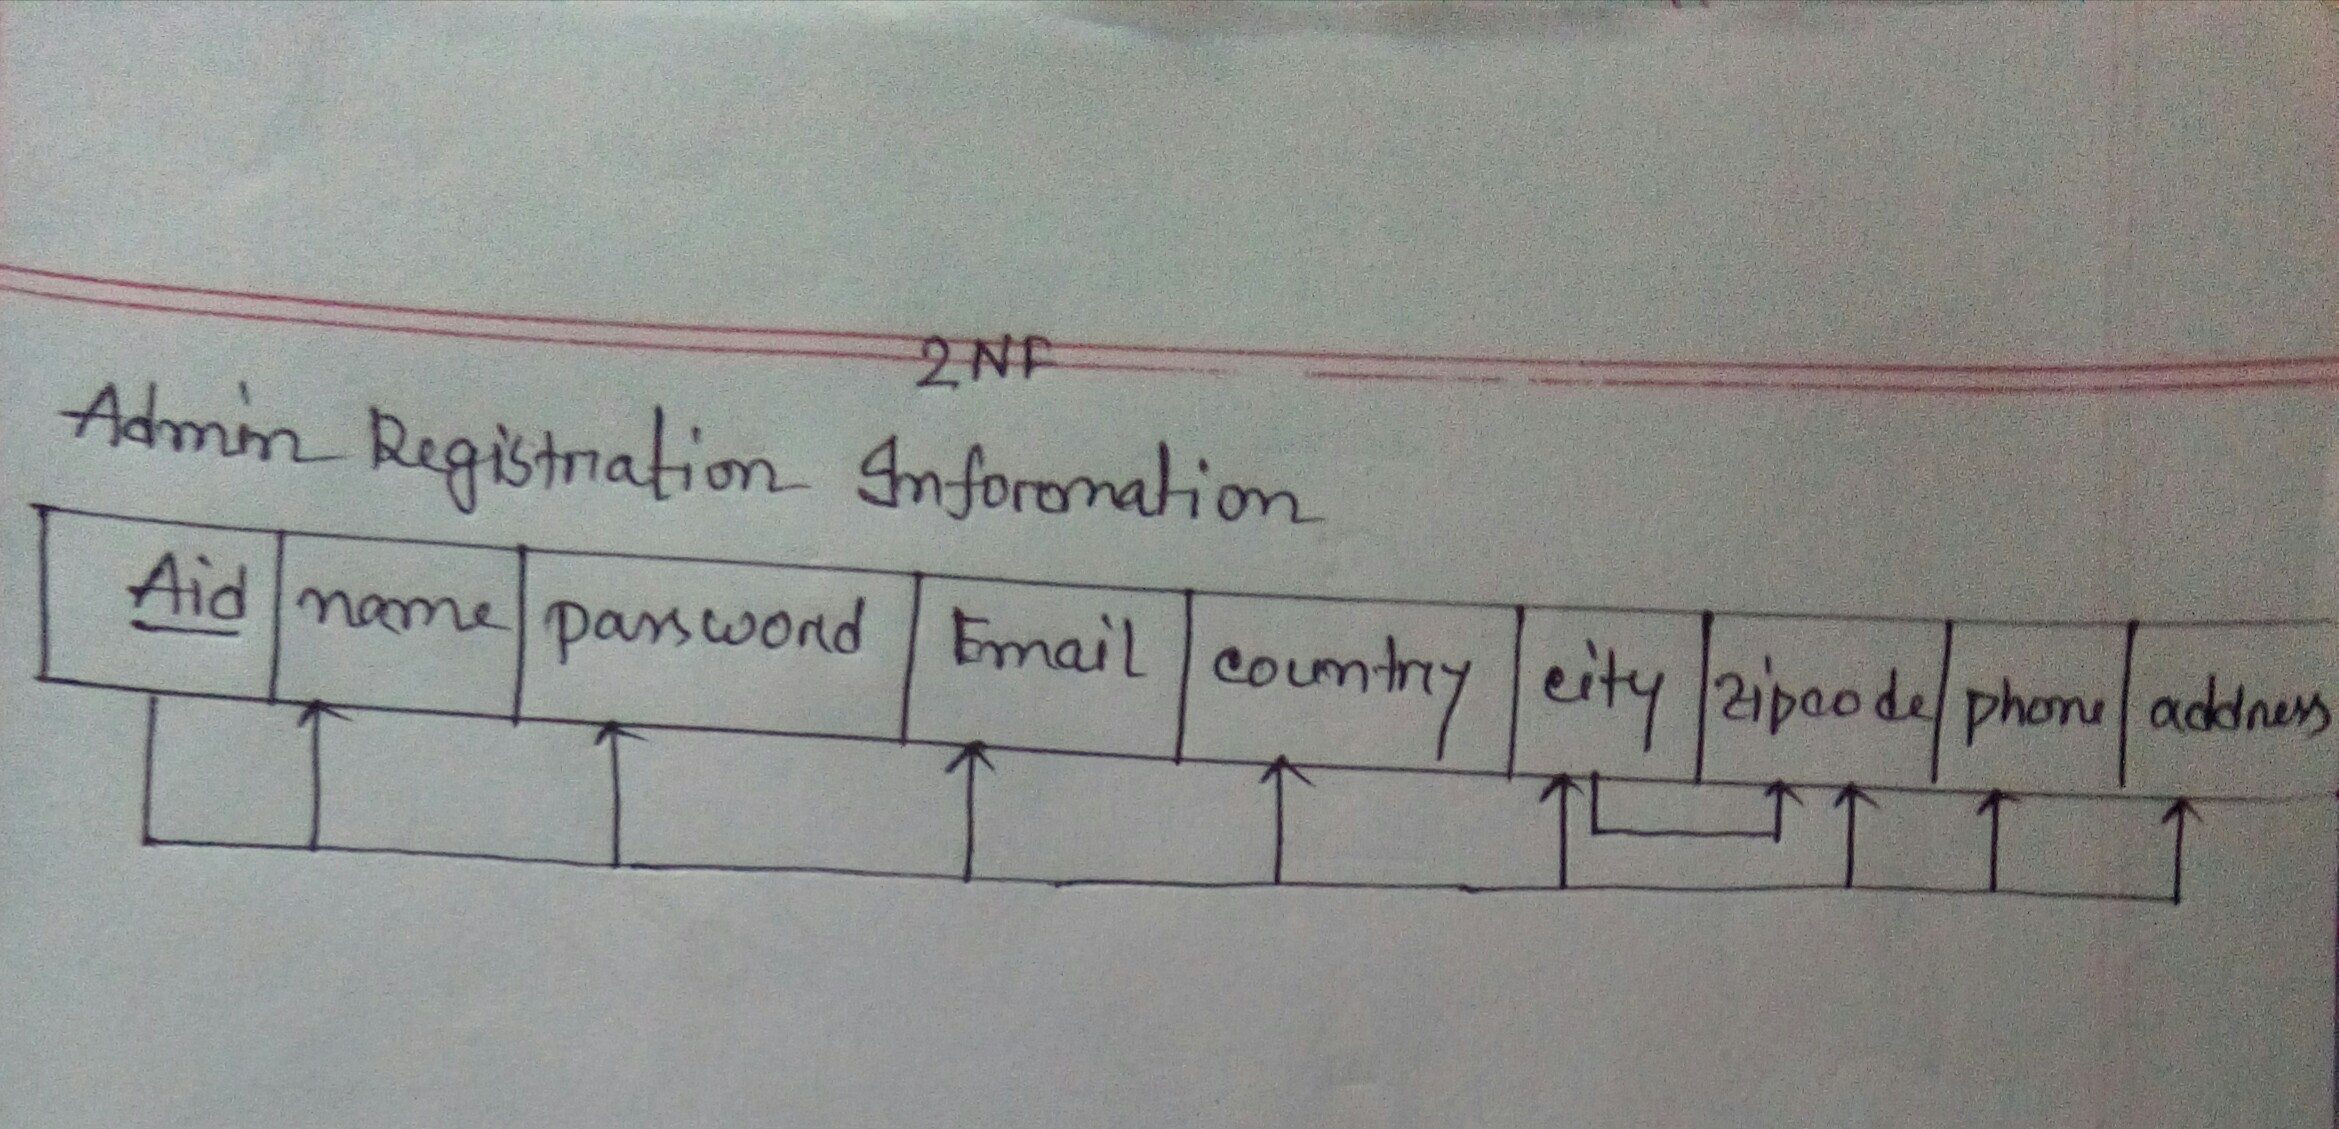 2NF
Admin Registration Information
Aid name password Email country city zipcode phone address